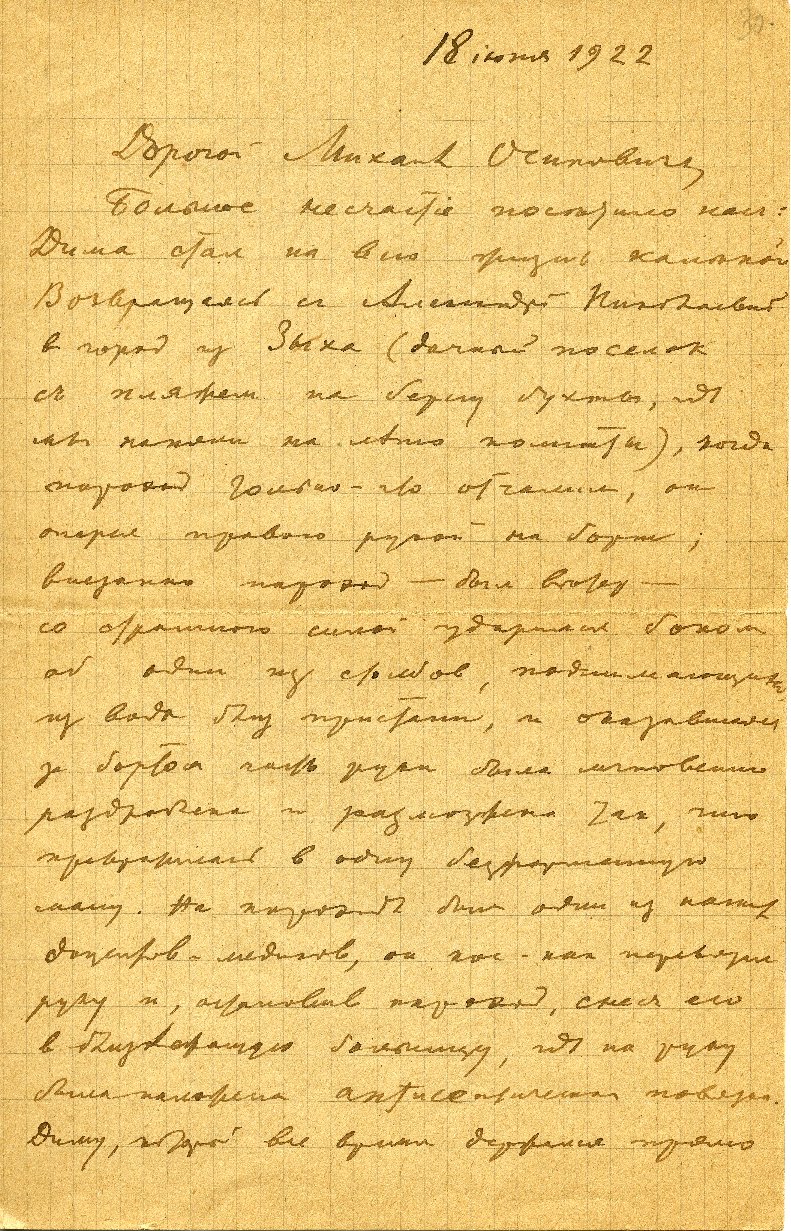 18 июня 1922
Дорогой Михаил Осипович,
Большое несчастіе постигло насъ:
Дима стал на всю жизнь калекой
Возвращаясь с Александрой Николаевной
в город из Зыха (дачный поселок
съ пляжем на берегу бухты, гдѣ
мы наняли на лѣто комнаты), когда
пароход только-что отчалил, он
оперся правою рукой на борт;
внезапно пароход — был вѣтер —
со страшною силой ударился боком
об один из столбов, поднимающихся
из воды близ пристани, и оказавшаяся
за бортом часть руки была мгновенно
раздроблена и размозжена так, что
превратилась в одну безформенную
массу. На пароходѣ был один из наших
доцентов-медиков, он кое-как перевязал
руку и, остановив пароход, снес его
в близлежащую больницу, гдѣ на руку
была наложена антисептическая повязка.
Диму, который все время держался прямо